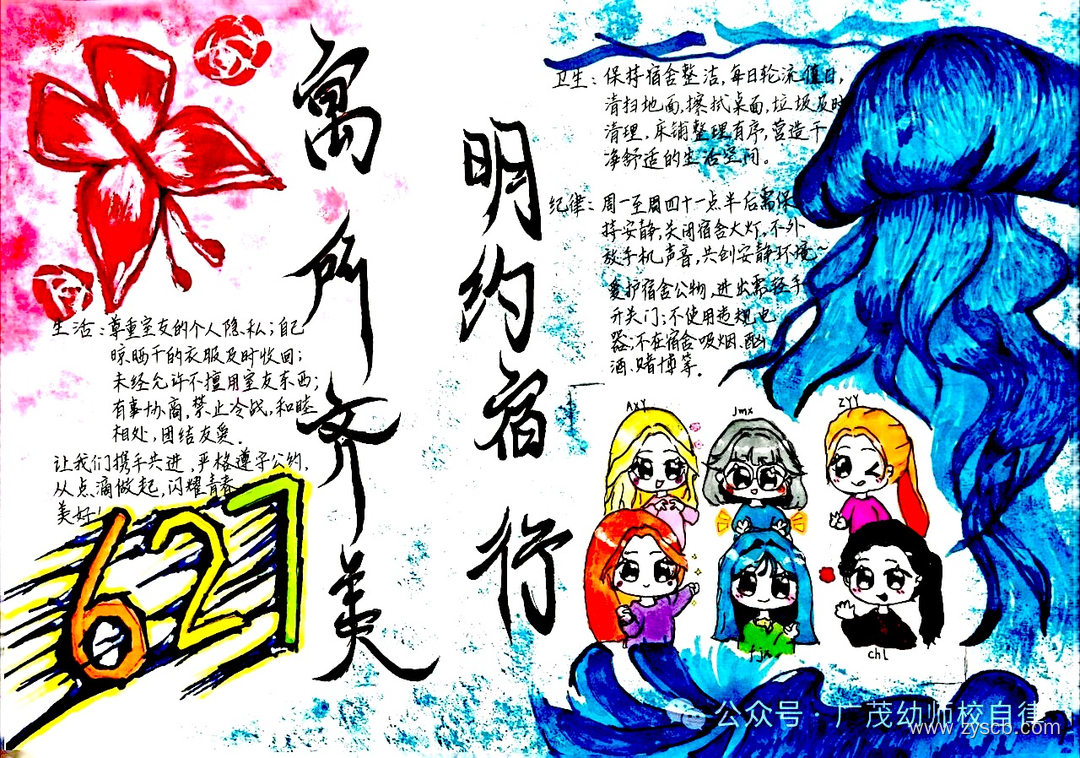 明约宿行
寓所齐美
卫生：保持宿舍整洁，每日轮流值日，
清扫地面，擦拭桌面，垃圾及时
清理，床铺整理有序，营造干
净舒适的生活空间。
纪律：周一至周四十一点半后需保
持安静；关闭宿舍大灯，不外
放手机声音，共创安静环境~
爱护宿舍公物，进出需轻手
开关门；不使用违规电
器；不在宿舍吸烟、酗
酒、赌博等。
生活：尊重室友的个人隐私；自己
晾晒干的衣服及时收回；
未经允许不擅用室友东西；
有事协商，禁止冷战，和睦
相处，团结友爱。
让我们携手共进，严格遵守公约，
从点滴做起，闪耀青春
美好！
627
AYY
jmx
ZYY
chl
公众号·广茂幼师校自律
www.zyscb.com